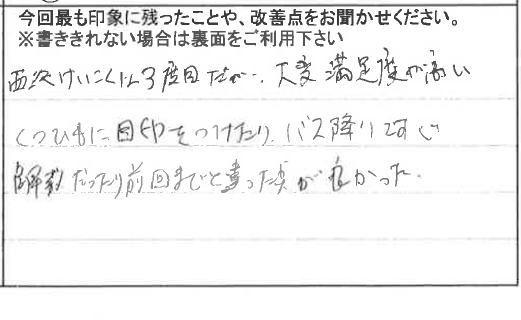 今回最も印象に残ったことや、改善点をお聞かせください。
※書ききれない場合は裏面をご利用下さい
西沢けいこくは3度目だが、大変満足度が高い
くつひもに目印をつけたり、バス降りてすぐ
解散だったり前回までと違った点が良かった。